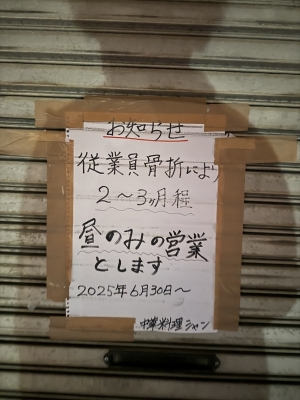 お知らせ
従業員骨折により
2～3ヵ月程
昼のみの営業
とします
2025年6月30日～
中華料理シャン